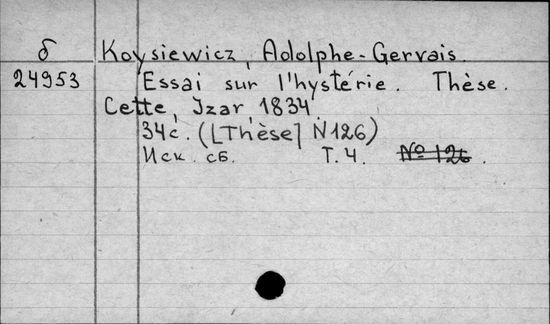 б Koysiewicz, Adolphe-Gervais.
24953 Essai sur l'hystérie. Thèse.
Cette, Izar, 1834.
34с. ([Thèse] N126)
Иск. сб. Т. 4. № 126.